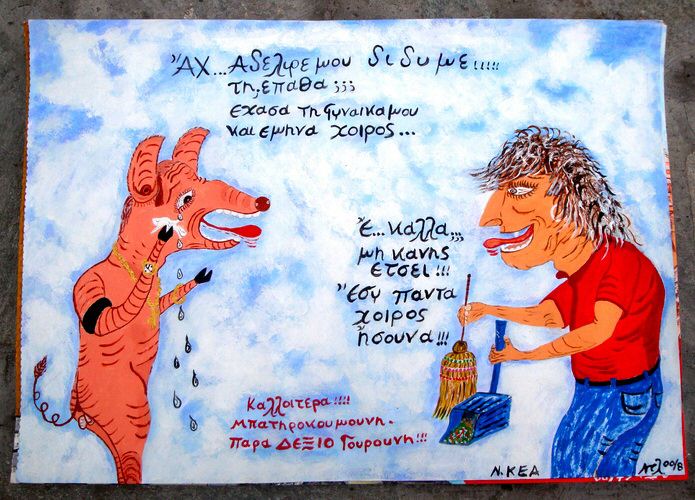 "ΑΧ... Αδελφε μου διδυμε!!!!!
τη, επαθα ;;;
εχασα τη γυναικα μου
και εμηνα χοιρος...
"Ε... καλλα;;;
μη κανης
ετσει!!!
"Εσυ παντα
χοιρος
ησουνα!!!
Καλλοιτερα!!!!
μπατηροκουμουνη.
παρα ΔΕΞΙΟ Γουρουνη!!!
Ν. ΚΕΑ